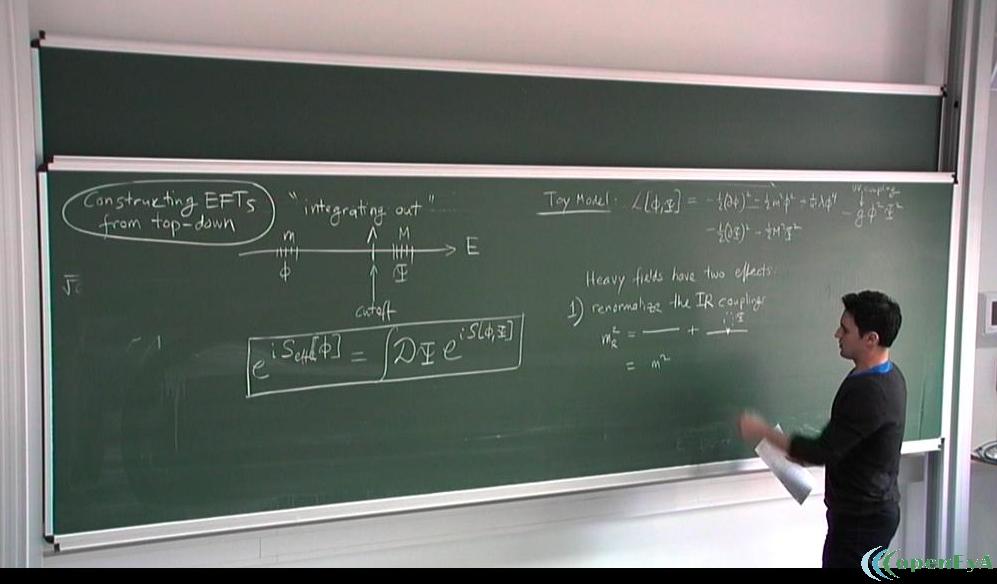 Constructing EFTs
from top-down
"integrating out"
m
M
E
ϕ
Ψ
cutoff
e^{i S_{eff}[ϕ]} = ∫ DΨ e^{i S[ϕ,Ψ]}
Toy Model: L[ϕ,Ψ] = -½(∂ϕ)² - ½m²ϕ² + 1/4! λϕ⁴
-½(∂Ψ)² - ½M²Ψ²
UV coupling
- g ϕ²Ψ²
Heavy fields have two effects:
1) renormalize the IR couplings
Ψ
m_R² = +
= m²
openEyA